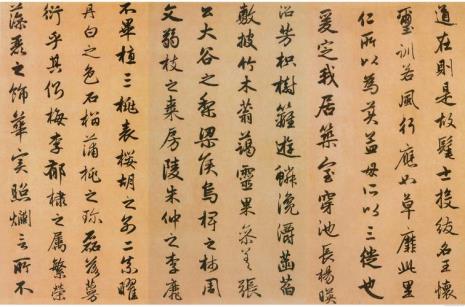 道在則是故髦士投紱名王懷
璽訓若風行應如草靡此里
仁所以為美孟母所以三徙也
爰定我居築室穿池長楊暎
沼芳枳樹籬遊鱗瀺灂菡萏
敷披竹木蓊藹靈果參差張
公大谷之梨梁侯烏椑之柿周
文弱枝之棗房陵朱仲之李靡
不畢植三桃表櫻胡之別二柰曜
丹白之色石榴蒲桃之珍磊落蔓
衍乎其側梅李郁棣之属繁榮
藻麗之飾華實照爛言所不